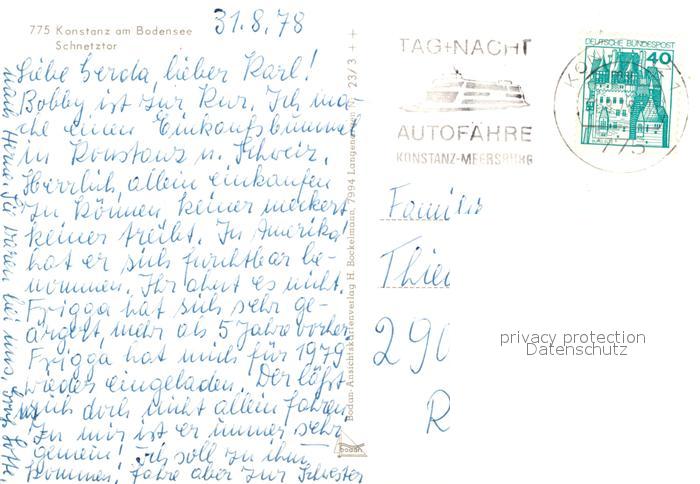 31.8.78
775 Konstanz am Bodensee
Schnetztor
Liebe Gerda, lieber Karl!
Bobby ist zur Kur. Ich ma-
che einen Einkaufsbummel
in Konstanz u. Schweiz.
Herrlich, allein einkaufen
zu können, keiner meckert
keiner treibt. In Amerika
hat er sich furchtbar be-
nommen. Ihr ahnt es nicht.
Frigga hat sich sehr ge-
ärgert, mehr als 5 Jahre vorher
Frigga hat mich für 1979
wieder eingeladen. Der läßt
mich doch nicht allein fahren
Zu mir ist er immer sehr
gemein! Ich soll zu ihm
kommen. Fahre aber zur Schwester
nach Herne. Sie waren bei uns.
Bodan-Ansichtskartenverlag H. Bockelmann, 7994 Langenargen
23/3 + +
bodan
TAG+NACHT
AUTOFÄHRE
KONSTANZ-MEERSBURG
DEUTSCHE BUNDESPOST
40
KONSTANZ 1
775
Famili
Thie
290
R
privacy protection
Datenschutz